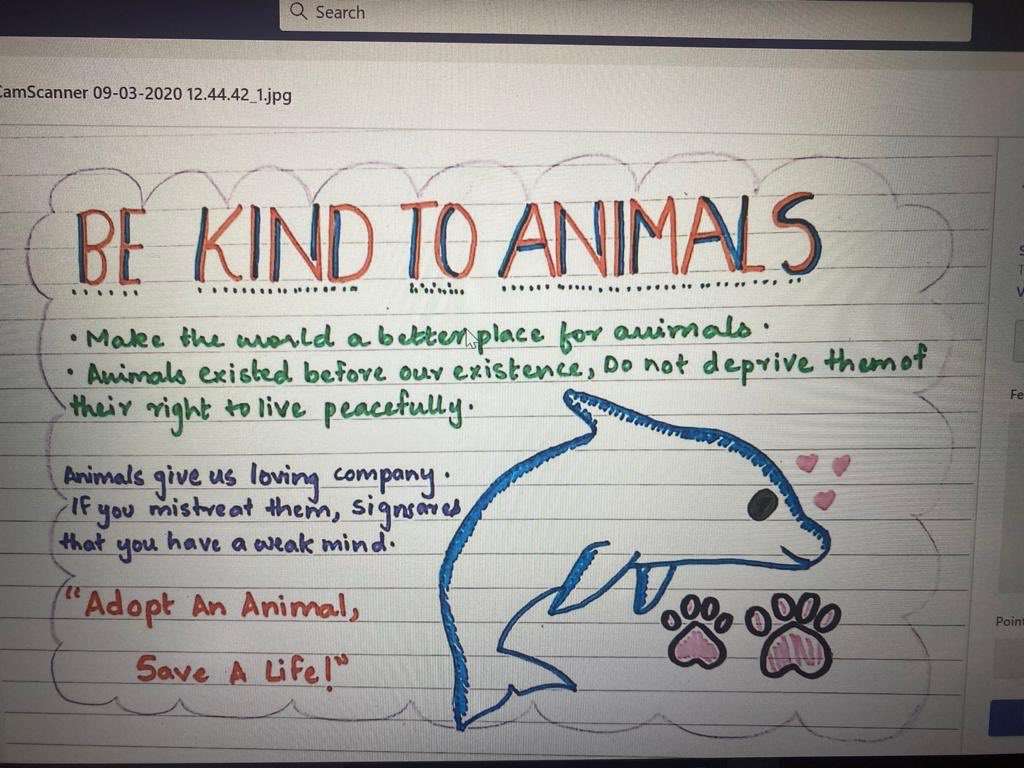 Search
CamScanner 09-03-2020 12.44.42_1.jpg
BE KIND TO ANIMALS
• Make the world a better place for animals.
• Animals existed before our existence, Do not deprive them of
their right to live peacefully.
Animals give us loving company.
If you mistreat them, signs are
that you have a weak mind.
"Adopt An Animal,
Save A Life!"
Fe
Point